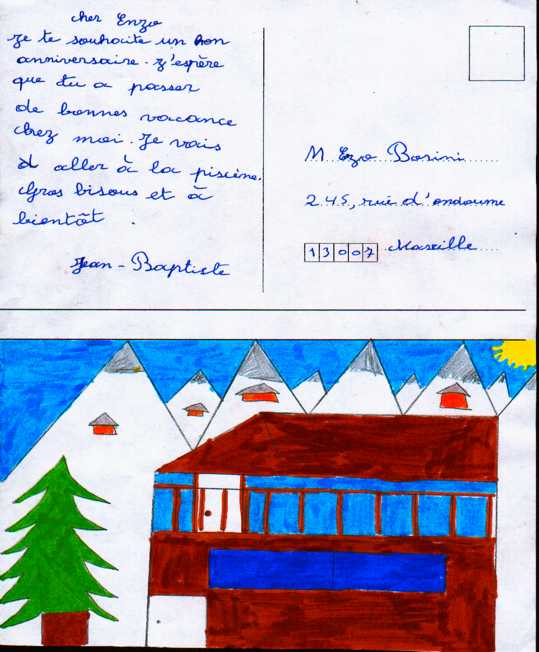 cher Enzo
Je te souhaite un bon
anniversaire. J'espère
que tu a passer
de bonnes vacance
chez moi. Je vais
aller à la piscine.
Gros bisous et à
bientôt.
Jean-Baptiste
M Ezo Bosini
245, rue d'endoume
13007 Marseille